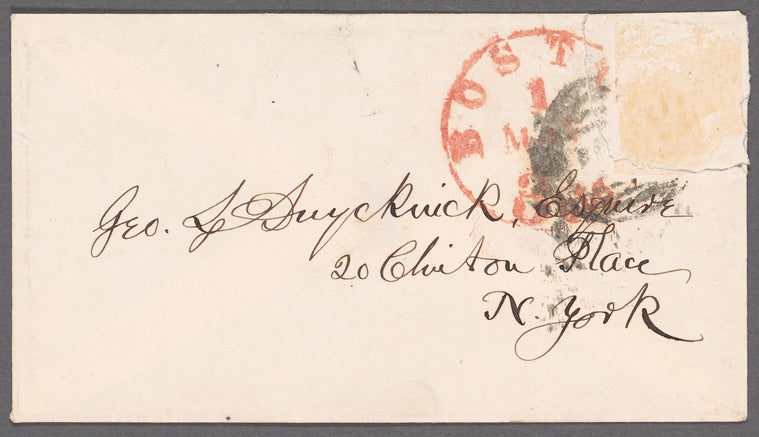 BOST
1
MA
Geo. L Duyckinick, Esquire
20 Clinton Place
N. York